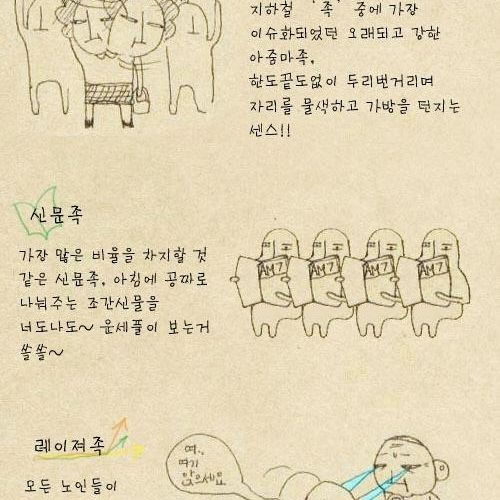 지하철 "족" 중에 가장
이슈화되었던 오래되고 강한
아줌마족,
한도끝도없이 두리번거리며
자리를 물색하고 가방을 던지는
센스!!
신문족
가장 많은 비율을 차지할 것
같은 신문족, 아침에 공짜로
나눠주는 조간신문을
너도나도~ 운세풀이 보는거
쏠쏠~
AM7 AM7 AM7 AM7
레이져족
여..
여기
앉으세요
모든 노인들이